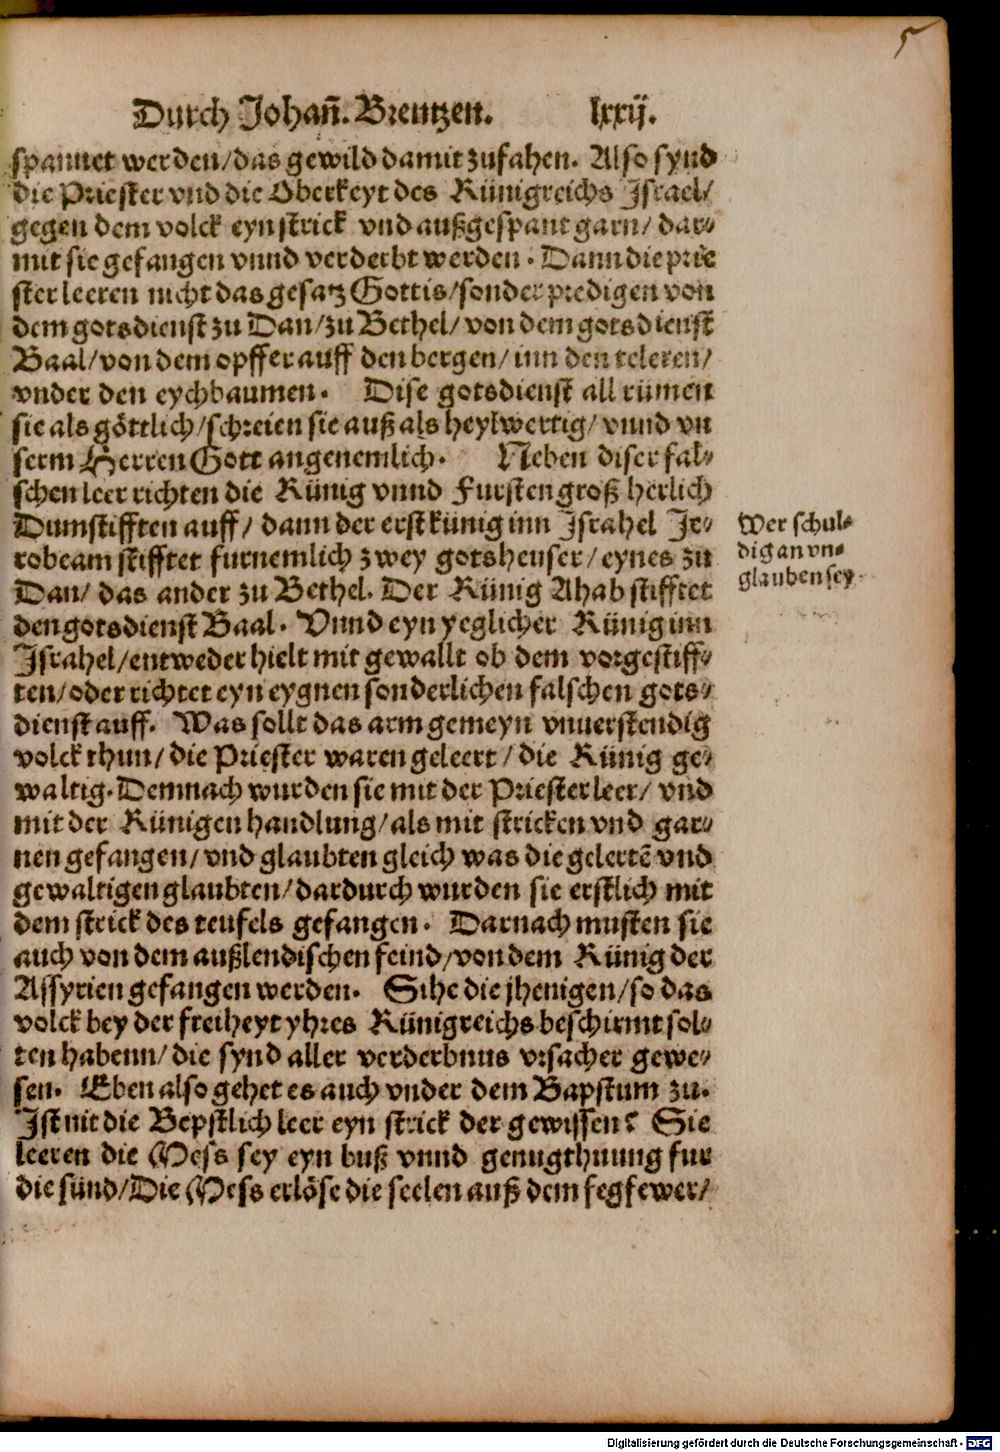 5
Durch Johañ. Brentzen. lxxij.
spannet werden/das gewild damit zufahen. Also synd
die Priester vnd die Oberkeyt des Künigreichs Israel/
gegen dem volck eyn strick vnd außgespant garn/ dar⸗
mit sie gefangen vnnd verderbt werden. Dann die prie
ster leeren nicht das gesatz Gottis/sonder predigen von
dem gotsdienst zu Dan/zu Bethel/von dem gotsdienst
Baal/von dem opffer auff den bergen/inn den teleren/
vnder den eychbaumen. Dise gotsdienst all rümen
sie als göttlich/schreien sie auß als heylwertig/vnnd vn
serm Herren Gott angenemlich. Neben diser fal⸗
schen leer richten die Künig vnnd Fursten groß herlich
Dumstifften auff/ dann der erst künig inn Israhel Je⸗
robeam stifftet furnemlich zwey gotsheuser/eynes zu
Dan/ das ander zu Bethel. Der Künig Ahab stifftet
den gotsdienst Baal. Vnnd eyn yeglicher Künig inn
Israhel/entweder hielt mit gewallt ob dem vorgestiff⸗
ten/oder richtet eyn eygnen sonderlichen falschen gots⸗
dienst auff. Was sollt das arm gemeyn vnuerstendig
volck thun/die Priester waren geleert/die Künig ge⸗
waltig. Demnach wurden sie mit der Priester leer/ vnd
mit der Künigen handlung/als mit stricken vnd gar⸗
nen gefangen/vnd glaubten gleich was die gelertē vnd
gewaltigen glaubten/dardurch wurden sie erstlich mit
dem strick des teufels gefangen. Darnach musten sie
auch von dem außlendischen feind/von dem Künig der
Assyrien gefangen werden. Sihe die jhenigen/so das
volck bey der freiheyt yhres Künigreichs beschirmt sol⸗
ten habenn/die synd aller verderbnus vrsacher gewe⸗
sen. Eben also gehet es auch vnder dem Bapstum zu.
Ist nit die Bepstlich leer eyn strick der gewissen? Sie
leeren die Mess sey eyn buß vnnd genugthuung fur
die sünd/Die Mess erlöse die seelen auß dem fegfewer/
Wer schul⸗
dig an vn⸗
glauben sey
Digitalisierung gefördert durch die Deutsche Forschungsgemeinschaft - DFG